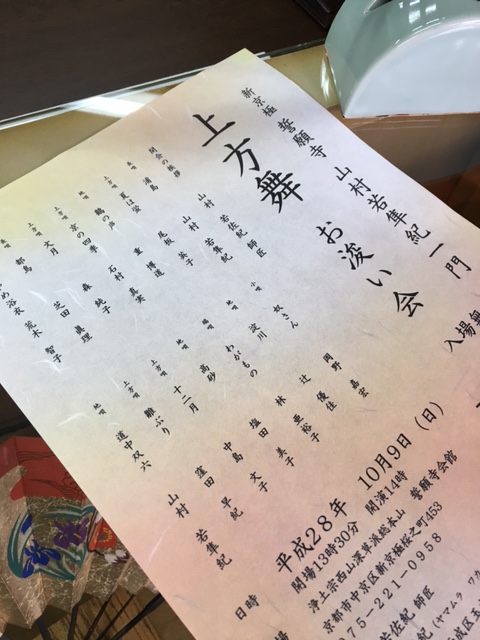 新京極 誓願寺 山村若隼紀 一門
上方舞 お浚い会
入場無
開会の挨拶 山村 若佐紀 師匠
長唄 浦島 山村 若隼紀
上方唄 夏は蛍 尾板 英子
地唄 鶴の声 重 博道
上方唄 京の四季 石村 真実
上方唄 文月 森 純子
都鳥 芝田 眞理
め浴衣 荒木 智子
小唄 奴さん 岡野 嘉宏
地唄 淀川 辻 優佳
端唄 わがもの 林 亜裕子
地唄 高砂 塩田 美子
上方唄 十二月 中島 文子
上方唄 鯛ふり 窪田 早紀
地唄 道中双六 山村 若隼紀
日時 平成28年 10月9日(日)
開場13時30分 開演14時
浄土宗西山深草派総本山 誓願寺会館
京都市中京区新京極桜之町453
75-221-0958
若佐紀 師匠
紀(ヤマムラ ワカ
城区玉